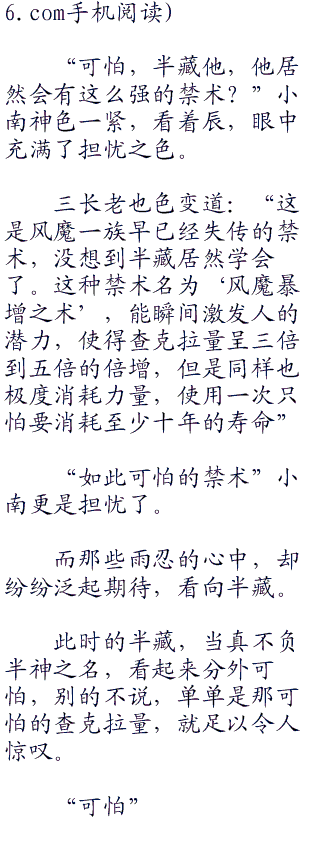 6.com手机阅读)
“可怕，半藏他，他居
然会有这么强的禁术？”小
南神色一紧，看着辰，眼中
充满了担忧之色。
三长老也色变道：“这
是风魔一族早已经失传的禁
术，没想到半藏居然学会
了。这种禁术名为‘风魔暴
增之术’，能瞬间激发人的
潜力，使得查克拉量呈三倍
到五倍的倍增，但是同样也
极度消耗力量，使用一次只
怕要消耗至少十年的寿命”
“如此可怕的禁术”小
南更是担忧了。
而那些雨忍的心中，却
纷纷泛起期待，看向半藏。
此时的半藏，当真不负
半神之名，看起来分外可
怕，别的不说，单单是那可
怕的查克拉量，就足以令人
惊叹。
“可怕”